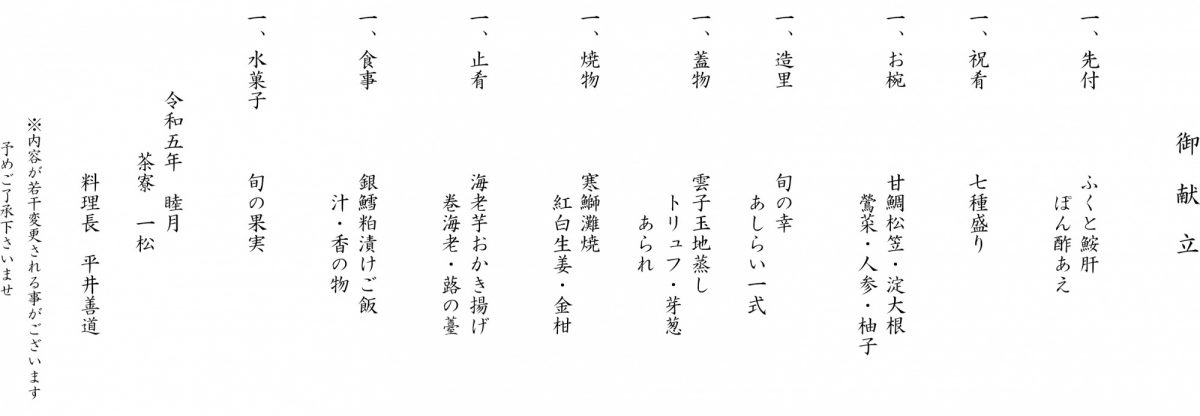 御献立
一、先付
ふくと鮟肝
ぽん酢あえ
一、祝肴
七種盛り
一、お椀
甘鯛松笠・淀大根
鶯菜・人参・柚子
一、造里
旬の幸
あしらい一式
一、蓋物
雲子玉地蒸し
トリュフ・芽葱
あられ
一、焼物
寒鰤灘焼
紅白生姜・金柑
一、止肴
海老芋おかき揚げ
巻海老・蕗の薹
一、食事
銀鱈粕漬けご飯
汁・香の物
一、水菓子
旬の果実
令和五年　睦月
茶寮　一松
料理長　平井善道
※内容が若干変更される事がございます
予めご了承下さいませ